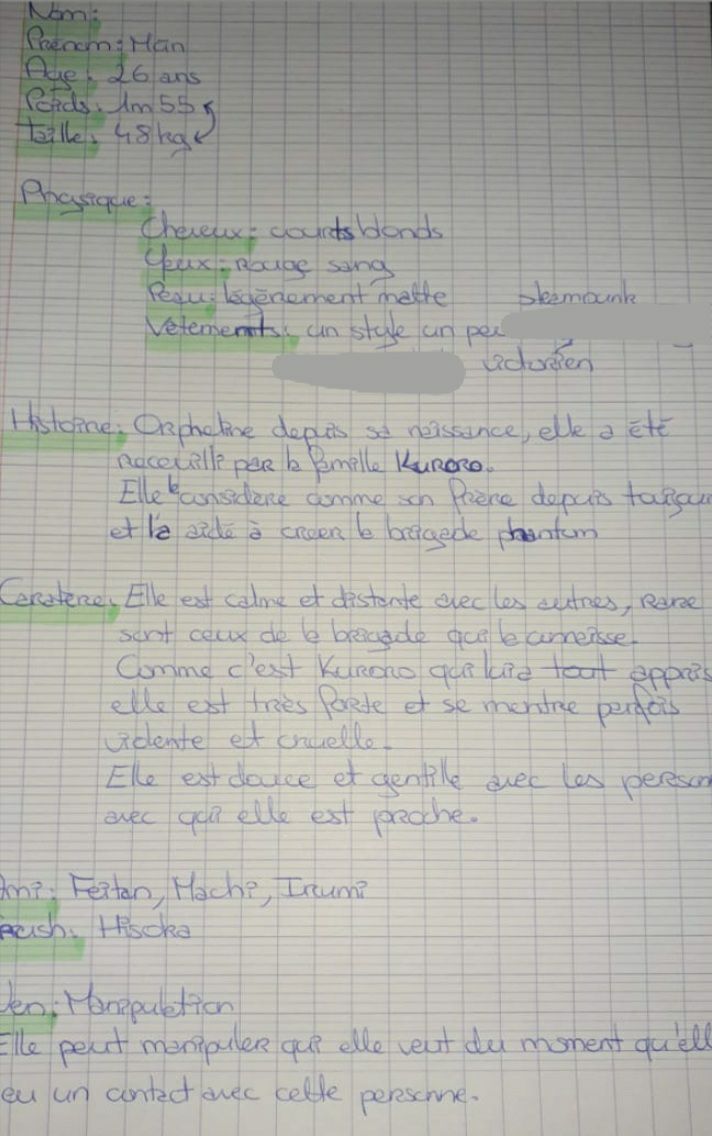 Nom:
Prénom: Man
Age: 26 ans
Poids: 1m55
Taille: 48kg
Physique:
Cheveux: courts blonds
Yeux: rouge sang
Peau: légèrement matte steamounk
Vêtements: un style un peu
victorien
Histoire: Orpheline depuis sa naissance, elle a été
recueilli par la famille Kuroro.
Elle le considère comme son frère depuis toujour
et l'a aidé à créer la brigade phantom
Caratère: Elle est calme et distante avec les autres, rare
sont ceux de la brigade qui la connaisse.
Comme c'est Kuroro qui lui a tout appris
elle est très forte et se montre parfois
violente et cruelle.
Elle est douce et gentille avec les person
avec qui elle est proche.
Ami: Feitan, Machi, Irumi
rush: Hisoka
Nen: Manipulation
Elle peut manipuler qui elle veut du moment qu'ell
eu un contact avec cette personne.